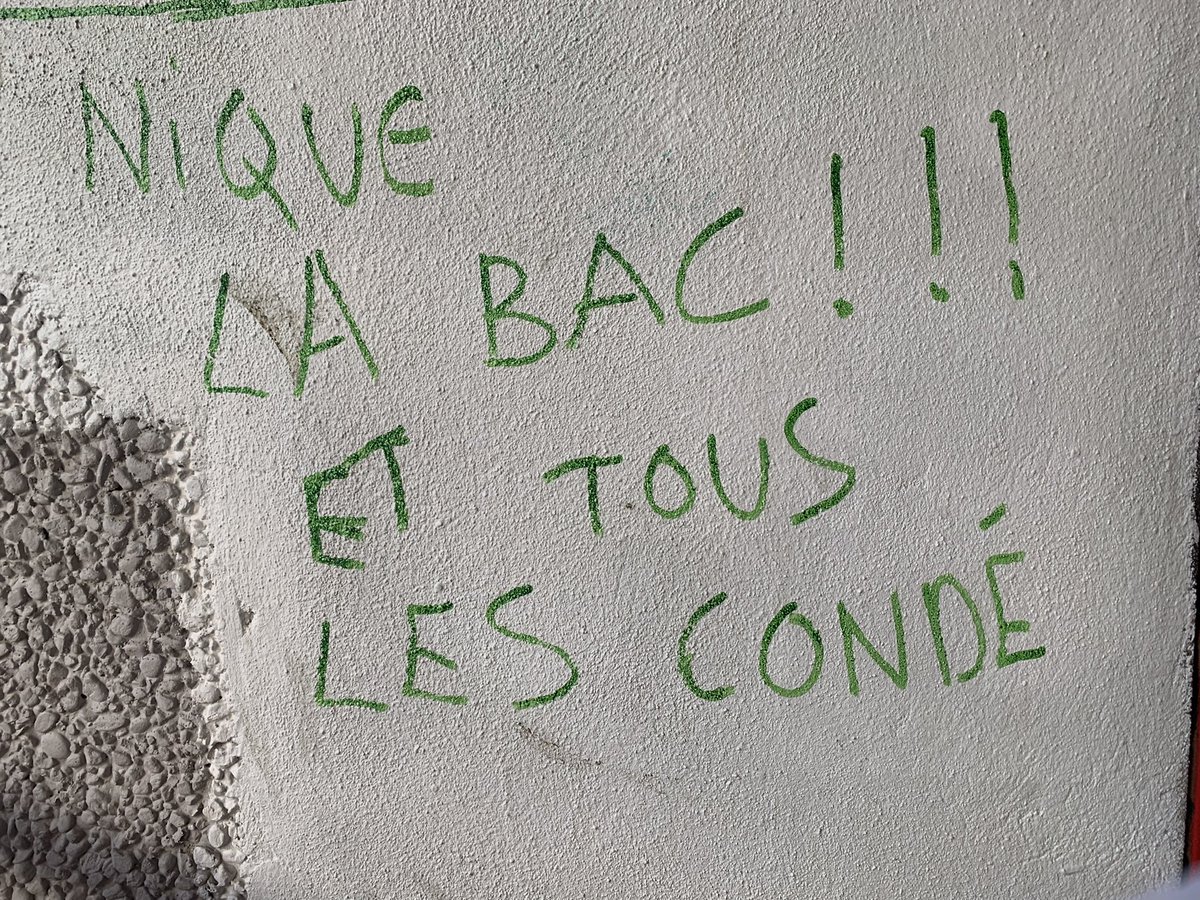 NiQUE
LA BAC!!!
ET TOUS
LES CONDÉ